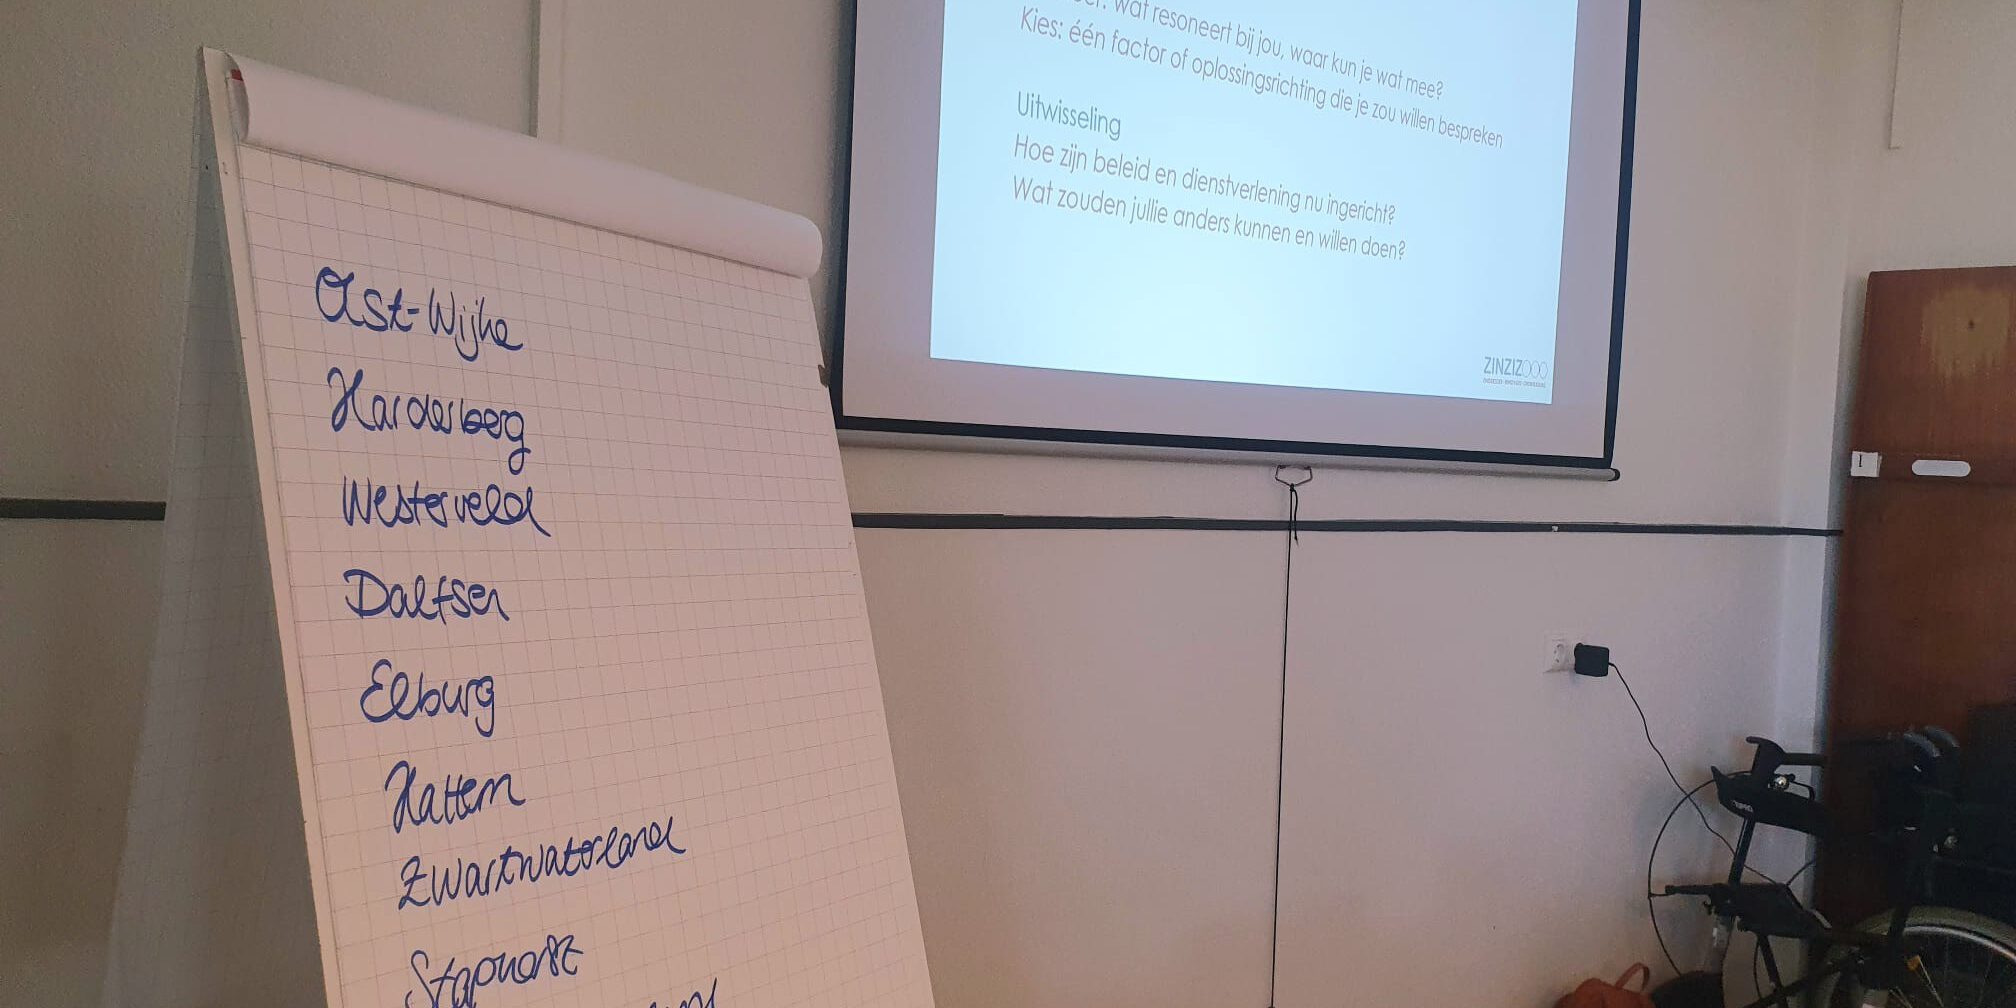 Olst-Wijhe
Harderberg
Westerveld
Dalfsen
Elburg
Hattem
Zwartwaterland
Staphorst
wat resoneert bij jou, waar kun je wat mee?
Kies: één factor of oplossingsrichting die je zou willen bespreken
Uitwisseling
Hoe zijn beleid en dienstverlening nu ingericht?
Wat zouden jullie anders kunnen en willen doen?
ZINZIZ